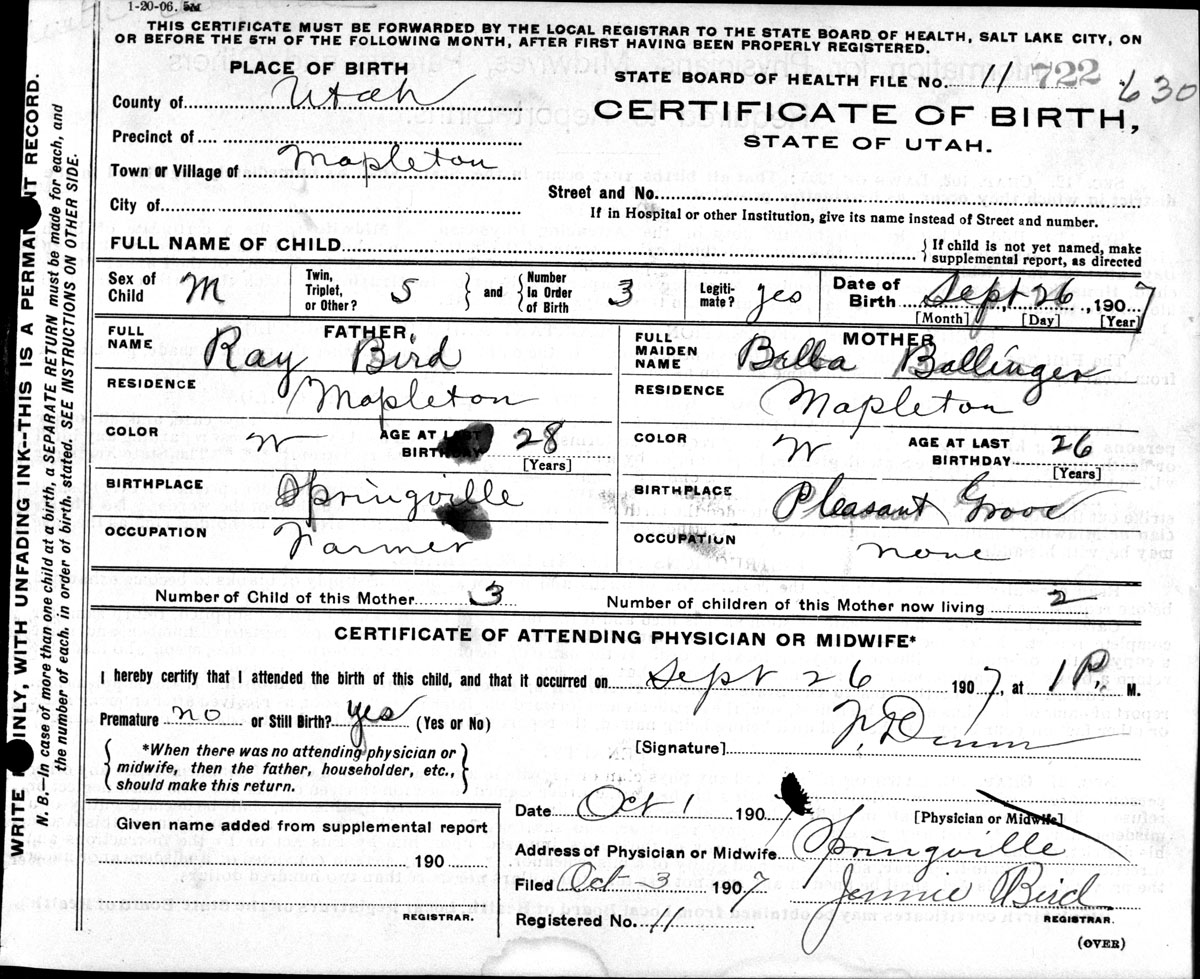 1-20-06. 5M
THIS CERTIFICATE MUST BE FORWARDED BY THE LOCAL REGISTRAR TO THE STATE BOARD OF HEALTH, SALT LAKE CITY, ON
OR BEFORE THE 5TH OF THE FOLLOWING MONTH, AFTER FIRST HAVING BEEN PROPERLY REGISTERED.
WRITE INLY, WITH UNFADING INK--THIS IS A PERMA NT RECORD.
N. B.—In case of more than one child at a birth, a SEPARATE RETURN must be made for each, and
the number of each, in order of birth, stated. SEE INSTRUCTIONS ON OTHER SIDE.
PLACE OF BIRTH
County of Utah
Precinct of
Town or Village of Mapleton
City of
STATE BOARD OF HEALTH FILE No. 11 722 630
CERTIFICATE OF BIRTH,
STATE OF UTAH.
Street and No.
If in Hospital or other Institution, give its name instead of Street and number.
FULL NAME OF CHILD { If child is not yet named, make
supplemental report, as directed
Sex of Child M Twin, Triplet, or Other? 5 } and { Number In Order of Birth 3 Legiti-mate? yes Date of Birth Sept 26, 1907
[Month] [Day] [Year]
FATHER,
FULL NAME Ray Bird
RESIDENCE Mapleton
COLOR W AGE AT LAST BIRTHDAY 28
[Years]
BIRTHPLACE Springville
OCCUPATION Farmer
MOTHER
FULL MAIDEN NAME Balla Ballinger
RESIDENCE Mapleton
COLOR W AGE AT LAST BIRTHDAY 26
[Years]
BIRTHPLACE Pleasant Grove
OCCUPATION none
Number of Child of this Mother 3 Number of children of this Mother now living 2
CERTIFICATE OF ATTENDING PHYSICIAN OR MIDWIFE*
I hereby certify that I attended the birth of this child, and that it occurred on Sept 26 1907, at 1 P. M.
Premature no or Still Birth? yes (Yes or No)
{ *When there was no attending physician or
midwife, then the father, householder, etc.,
should make this return. }
[Signature] Dunn
[Physician or Midwife]
Given name added from supplemental report
190
REGISTRAR.
Date Oct 1 190
Address of Physician or Midwife Springville
Filed Oct 3 1907 Jennie Bird
REGISTRAR.
Registered No. 11
(OVER)